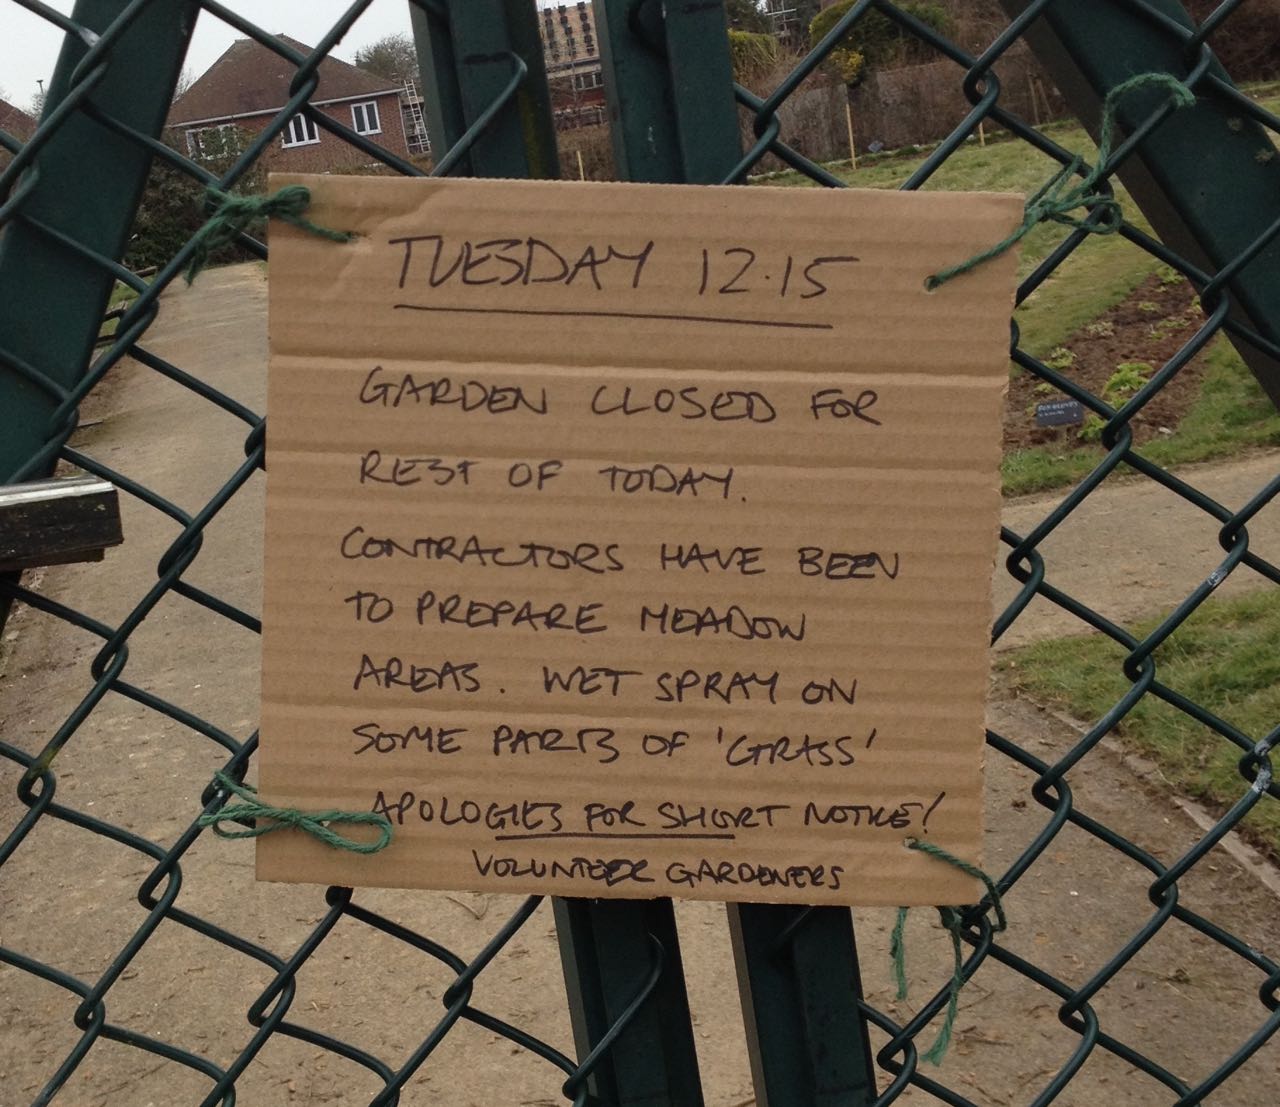 TUESDAY 12.15
GARDEN CLOSED FOR
REST OF TODAY.
CONTRACTORS HAVE BEEN
TO PREPARE MEADOW
AREAS. WET SPRAY ON
SOME PARTS OF 'GRASS'
APOLOGIES FOR SHORT NOTICE!
VOLUNTEER GARDENERS